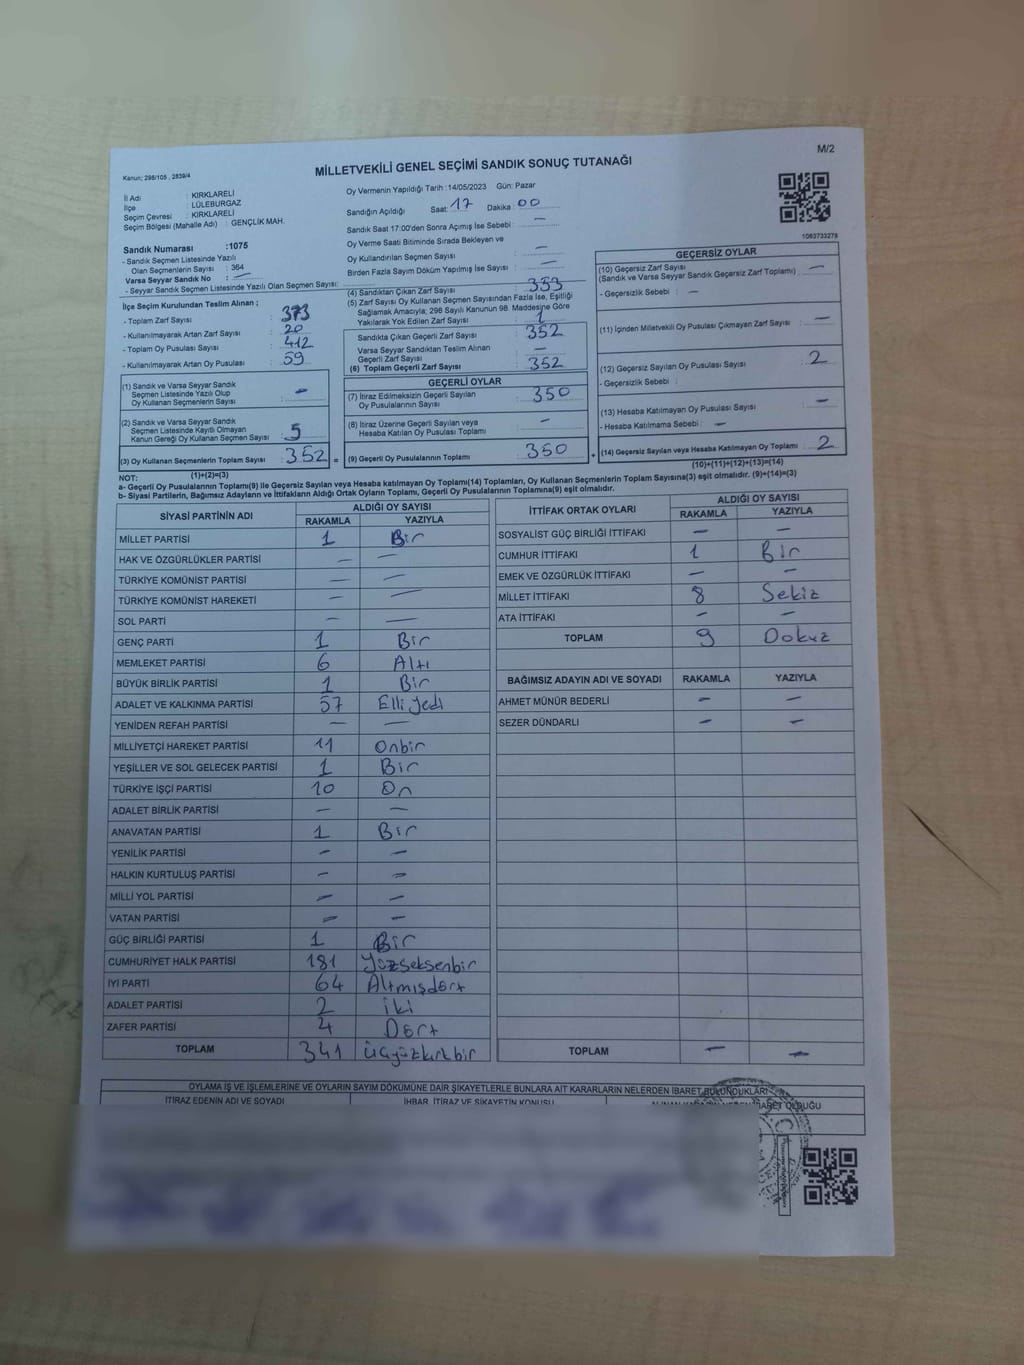 M/2
MİLLETVEKİLİ GENEL SEÇİMİ SANDIK SONUÇ TUTANAĞI
Kanun; 298/105 , 2839/4
İl Adı : KIRKLARELİ
İlçe : LÜLEBURGAZ
Seçim Çevresi : KIRKLARELİ
Seçim Bölgesi (Mahalle Adı) : GENÇLİK MAH.
Sandık Numarası :1075
- Sandık Seçmen Listesinde Yazılı
Olan Seçmenlerin Sayısı : 364
Varsa Seyyar Sandık No : —
- Seyyar Sandık Seçmen Listesinde Yazılı Olan Seçmen Sayısı:
Oy Vermenin Yapıldığı Tarih :14/05/2023 Gün: Pazar
Sandığın Açıldığı Saat: 17 Dakika : 00
Sandık Saat 17:00'den Sonra Açımış İse Sebebi : —
Oy Verme Saati Bitiminde Sırada Bekleyen ve
Oy Kullandırılan Seçmen Sayısı : —
Birden Fazla Sayım Döküm Yapılmış İse Sayısı : —
1063733278
İlçe Seçim Kurulundan Teslim Alınan ;
- Toplam Zarf Sayısı : 373
- Kullanılmayarak Artan Zarf Sayısı : 20
- Toplam Oy Pusulası Sayısı : 412
- Kullanılmayarak Artan Oy Pusulası : 59
(1) Sandık ve Varsa Seyyar Sandık
Seçmen Listesinde Yazılı Olup
Oy Kullanan Seçmenlerin Sayısı : —
(2) Sandık ve Varsa Seyyar Sandık
Seçmen Listesinde Kayıtlı Olmayan
Kanun Gereği Oy Kullanan Seçmen Sayısı : 5
(3) Oy Kullanan Seçmenlerin Toplam Sayısı : 352 =
(1)+(2)=(3)
(4) Sandıktan Çıkan Zarf Sayısı : 353
(5) Zarf Sayısı Oy Kullanan Seçmen Sayısından Fazla İse, Eşitliği
Sağlamak Amacıyla; 298 Sayılı Kanunun 98. Maddesine Göre
Yakılarak Yok Edilen Zarf Sayısı : 1
Sandıkta Çıkan Geçerli Zarf Sayısı : 352
Varsa Seyyar Sandıktan Teslim Alınan
Geçerli Zarf Sayısı : —
(6) Toplam Geçerli Zarf Sayısı : 352
GEÇERLİ OYLAR
(7) İtiraz Edilmeksizin Geçerli Sayılan
Oy Pusulalarının Sayısı : 350
(8) İtiraz Üzerine Geçerli Sayılan veya
Hesaba Katılan Oy Pusulası Toplamı : —
(9) Geçerli Oy Pusulalarının Toplamı : 350 +
GEÇERSİZ OYLAR
(10) Geçersiz Zarf Sayısı : —
(Sandık ve Varsa Seyyar Sandık Geçersiz Zarf Toplamı)
- Geçersizlik Sebebi : —
(11) İçinden Milletvekili Oy Pusulası Çıkmayan Zarf Sayısı : —
(12) Geçersiz Sayılan Oy Pusulası Sayısı : 2
- Geçersizlik Sebebi :
(13) Hesaba Katılmayan Oy Pusulası Sayısı : —
- Hesaba Katılmama Sebebi : —
(14) Geçersiz Sayılan veya Hesaba Katılmayan Oy Toplamı : 2
(10)+(11)+(12)+(13)=(14)
NOT:
a- Geçerli Oy Pusulaları Toplamı(9) ile Geçersiz Sayılan veya Hesaba katılmayan Oy Toplamı(14) Toplamları, Oy Kullanan Seçmenlerin Toplam Sayısına(3) eşit olmalıdır. (9)+(14)=(3)
b- Siyasi Partilerin, Bağımsız Adayların ve İttifakların Aldığı Ortak Oyların Toplamı, Geçerli Oy Pusulalarının Toplamına(9) eşit olmalıdır.
SİYASİ PARTİNİN ADI ALDIĞI OY SAYISI
RAKAMLA YAZIYLA
MİLLET PARTİSİ 1 Bir
HAK VE ÖZGÜRLÜKLER PARTİSİ — —
TÜRKİYE KOMÜNİST PARTİSİ — —
TÜRKİYE KOMÜNİST HAREKETİ — —
SOL PARTİ — —
GENÇ PARTİ 1 Bir
MEMLEKET PARTİSİ 6 Altı
BÜYÜK BİRLİK PARTİSİ 1 Bir
ADALET VE KALKINMA PARTİSİ 57 Elli yedi
YENİDEN REFAH PARTİSİ — —
MİLLİYETÇİ HAREKET PARTİSİ 11 Onbir
YEŞİLLER VE SOL GELECEK PARTİSİ 1 Bir
TÜRKİYE İŞÇİ PARTİSİ 10 On
ADALET BİRLİK PARTİSİ — —
ANAVATAN PARTİSİ 1 Bir
YENİLİK PARTİSİ — —
HALKIN KURTULUŞ PARTİSİ — —
MİLLİ YOL PARTİSİ — —
VATAN PARTİSİ — —
GÜÇ BİRLİĞİ PARTİSİ 1 Bir
CUMHURİYET HALK PARTİSİ 181 Yüzseksenbir
İYİ PARTİ 64 Altmışdört
ADALET PARTİSİ 2 iki
ZAFER PARTİSİ 4 Dört
TOPLAM 341 üçyüzkırkbir
İTTİFAK ORTAK OYLARI ALDIĞI OY SAYISI
RAKAMLA YAZIYLA
SOSYALİST GÜÇ BİRLİĞİ İTTİFAKI — —
CUMHUR İTTİFAKI 1 Bir
EMEK VE ÖZGÜRLÜK İTTİFAKI — —
MİLLET İTTİFAKI 8 Sekiz
ATA İTTİFAKI — —
TOPLAM 9 Dokuz
BAĞIMSIZ ADAYIN ADI VE SOYADI RAKAMLA YAZIYLA
AHMET MÜNÜR BEDERLİ — —
SEZER DÜNDARLI — —
TOPLAM — —
OYLAMA İŞ VE İŞLEMLERİNE VE OYLARIN SAYIM DÖKÜMÜNE DAİR ŞİKAYETLERLE BUNLARA AİT KARARLARIN NELERDEN İBARET BULUNDUKLARI
İTİRAZ EDENİN ADI VE SOYADI İHBAR, İTİRAZ VE ŞİKAYETİN KONUSU